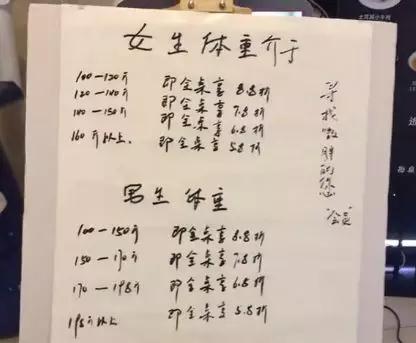 女生体重介于
100—120斤 即全桌享8.8折
120—140斤 即全桌享7.8折
140—150斤 即全桌享6.8折
160斤以上. 即全桌享5.8折
男生体重
100—150斤 即全桌享8.8折
150—170斤 即全桌享7.8折
170—195斤 即全桌享6.8折
195斤以上 即全桌享5.8折
寻找微胖的您
"会员"